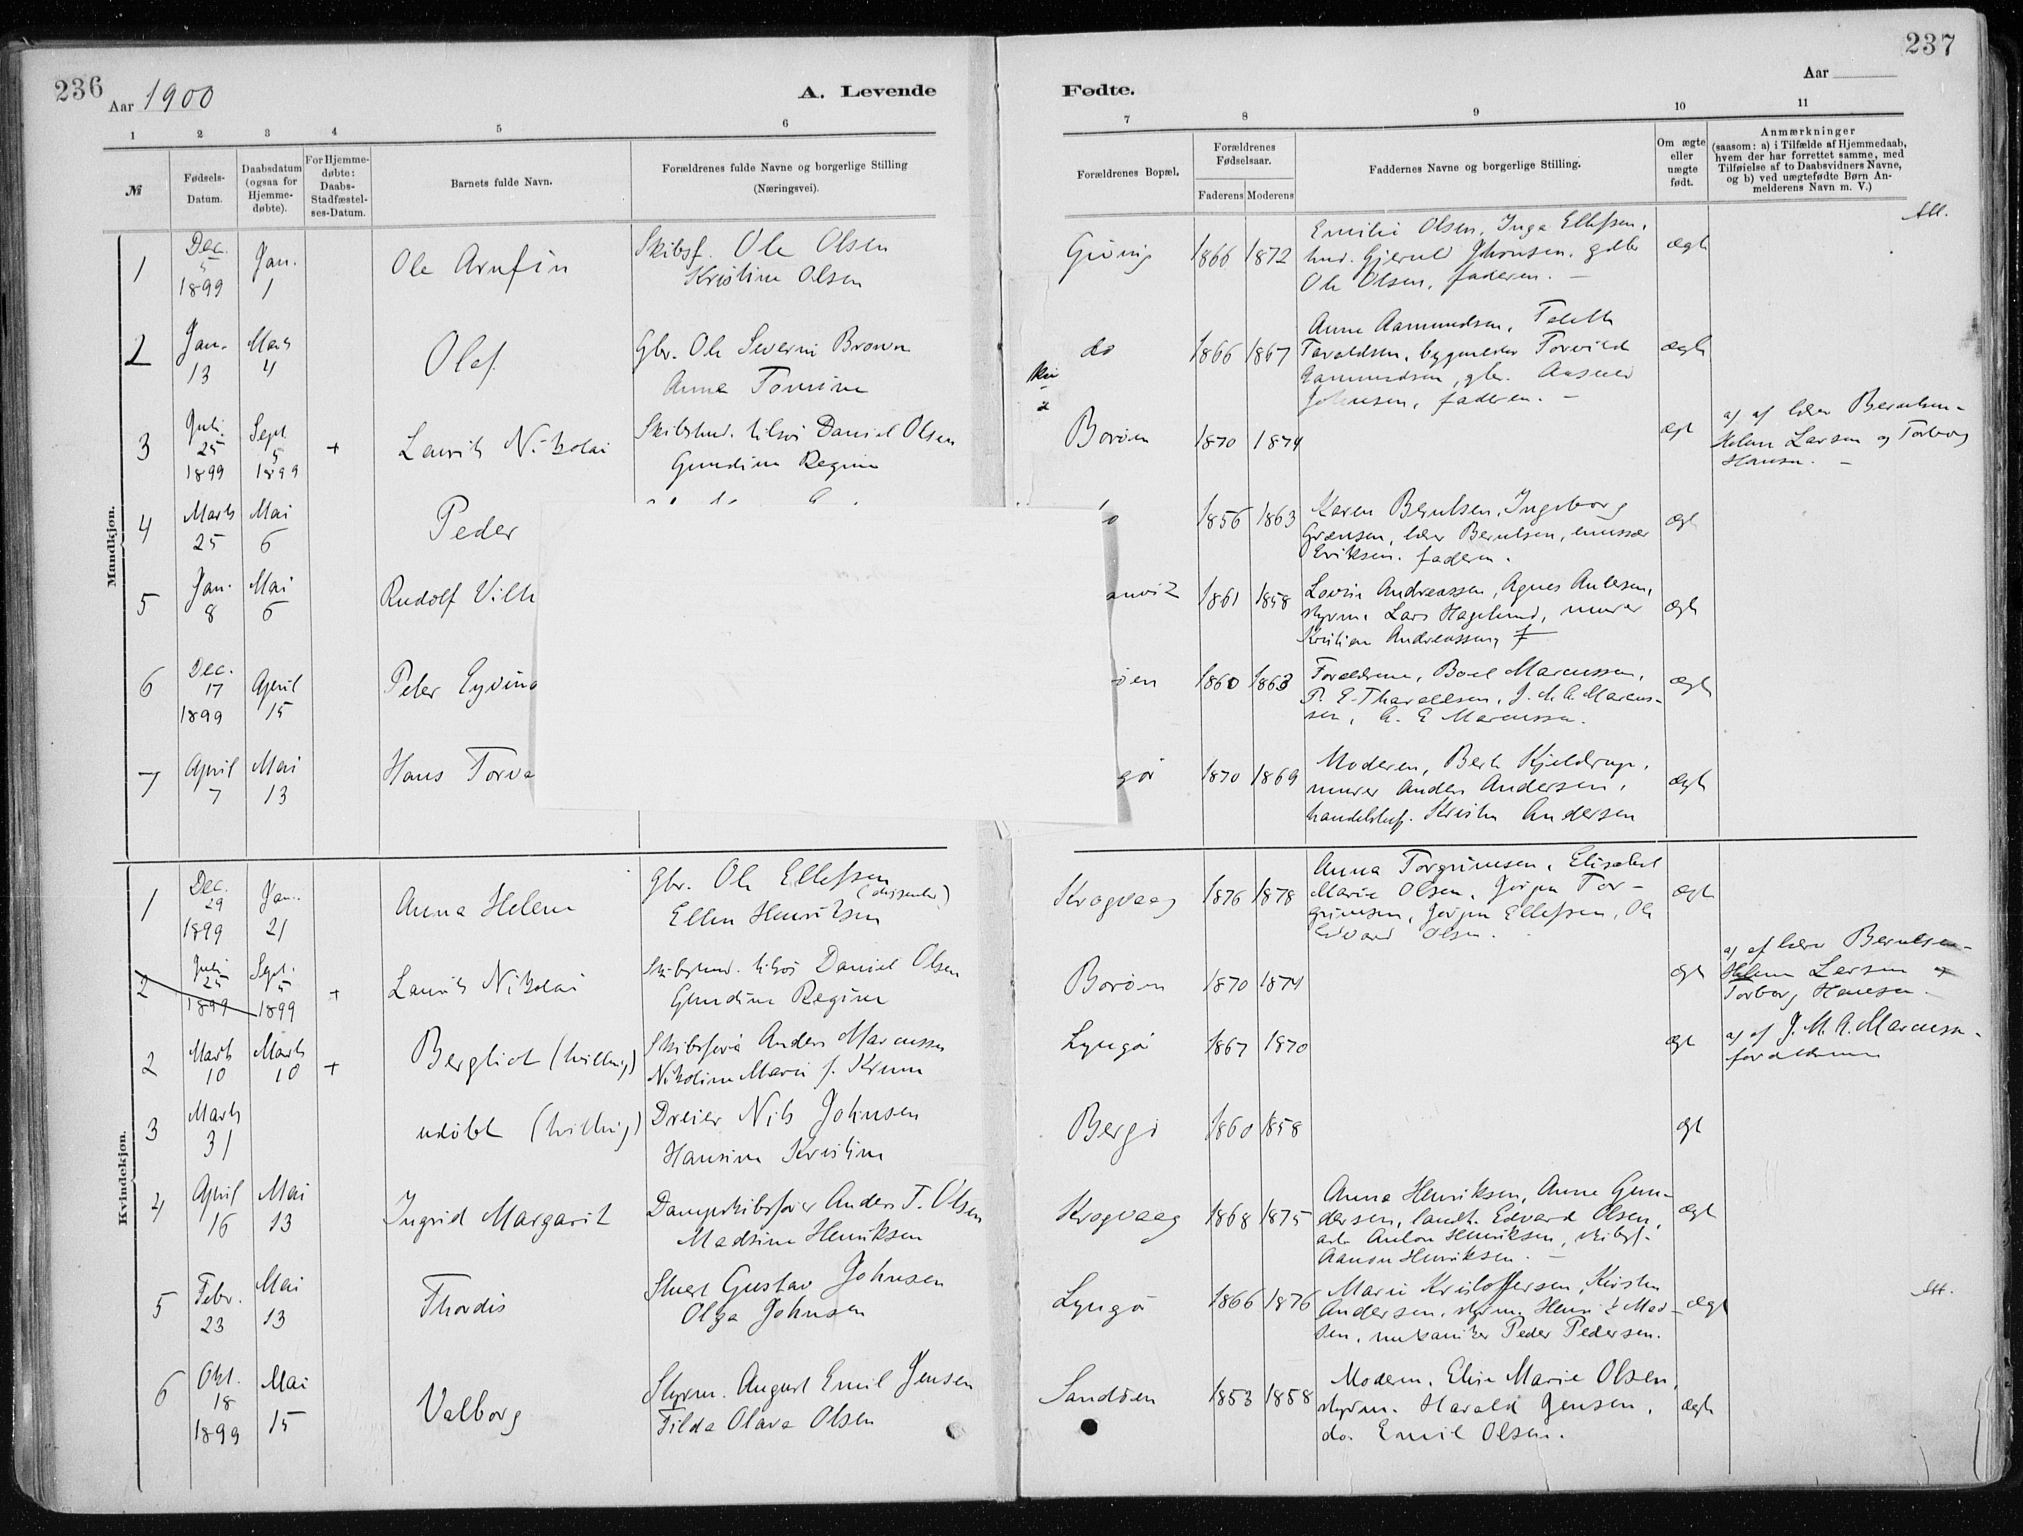 236
Aar 1900
A. Levende
1 2 3 4 5 6
№
Fødsels-Datum.
Daabsdatum (ogsaa for Hjemme-døbte).
For Hjemme-døbte: Daabs-Stadfæstel-ses-Datum.
Barnets fulde Navn.
Forældrenes fulde Navne og borgerlige Stilling
(Næringsvei).
237
Aar
Fødte.
7 8 9 10 11
Forældrenes Bopæl.
Forældrenes Fødselsaar.
Faderens Moderens
Faddernes Navne og borgerlige Stilling.
Om ægte eller uægte født.
Anmærkninger
(saasom: a) i Tilfælde af Hjemmedaab,
hvem der har forrettet samme, med
Tilføielse af to Daabsvidners Navne,
og b) ved uægtefødte Børn An-
melderens Navn m. V.)
Mandkjøn.
1 Dec. 5 1899 Jan. 1 Ole Arnfin
Skibsf. Ole Olsen
Kristine Olsen
Gjving 1866 1872
Emilie Olsen, Inga Ellefsen,
Ole Olsen, faderen. —
ægte
2 Jan. 13 Marts 4 Olaf
Gbr. Ole Severin
Anna Tomine
do 1866 1867
Anne Aamundsen,
Johnsen, faderen. —
ægte
3 Juli 25 1899 Sept 5 1899 + Laurits Nikolai
Daniel Olsen
Gundine Regine
Borøen 1870 1874
ægt
a) af lærer Berulsen -
Helene Larsen og Torborg
Hansen. —
4 Marts 25 Mai 6 Peder
1856 1863
Karen Berulsen, Ingeborg
lærer Berulsen, emissær
Eriksen. faderen.
ægt
5 Jan. 8 Mai 6 Rudolf Vilh
1861 1858
Lovise Andreassen, Agnes
styrm. Lars Hagelund, murer
Kristian Andreassen,
ægte
6 Dec. 17 1899 April 15 Peter Eyvind
øen 1860 1863
Forældrene, Boel Marcussen,
P. E. Tharaldsen, J. M. A. Marcus-
sen, A. E Marcussen.
ægte
7 April 7 Mai 13 Hans Torva
gør 1870 1869
Moderen, Berte Kjeldrup,
murer Anders Andersen,
Andersen
ægte
Kvindekjøn.
1 Dec. 29 1899 Jan. 21 Anna Helene
Gbr. Ole Ellefsen
(dissenter)
Ellen Henriksen
Krogvaag 1876 1878
Anna Torgrimsen, Elisabet
Marie Olsen, Jørgen Tor-
grimsen, Jørgen Ellefsen, Ole
Edvard Olsen.
ægte
2 Juli 25 1899 Sept. 5 1899 + Laurits Nikolai
Daniel Olsen
Gundine Regine
Borøen 1870 1874
ægt
a) af lærer Berulsen -
Helene Larsen og
Torborg Hansen. —
2 Marts 10 Marts 10 + Bergliot (tvilling)
Skibsfører Anders Marcussen
Nikoline Marie f. Krum
Lyngør 1867 1870
ægt
a) af J. M. A. Marcussen -
forældrene
3 Marts 31 udøbt (tvilling)
Dreier Nils Johnsen
Hansine Kristine
Bergø 1860 1858
ægt
4 April 16 Mai 13 Ingrid Margarit
Dampskibsfører Anders T. Olsen
Madsine Henriksen
Krogvaag 1868 1875
Anna Henriksen, Anne Gun-
dersen, landh. Edvard Olsen,
arb. Anton Henriksen, skibsf.
Aanon Henriksen. —
ægt
5 Febr. 23 Mai 13 Thordis
Stuert Gustav Johnsen
Olga Johnsen
Lyngør 1866 1876
Marie Kristoffersen, Kirsten
Andersen, styrm. Henrik Mad-
sen, mekaniker Peder Pedersen.
ægt
6 Okt. 18 1899 Mai 15 Valborg
Styrm. August Emil Jensen
Tilda Olava Olsen
Sandøen 1853 1858
Moderen, Elise Marie Olsen,
styrm. Harald Jensen,
do. Emil Olsen.
ægte